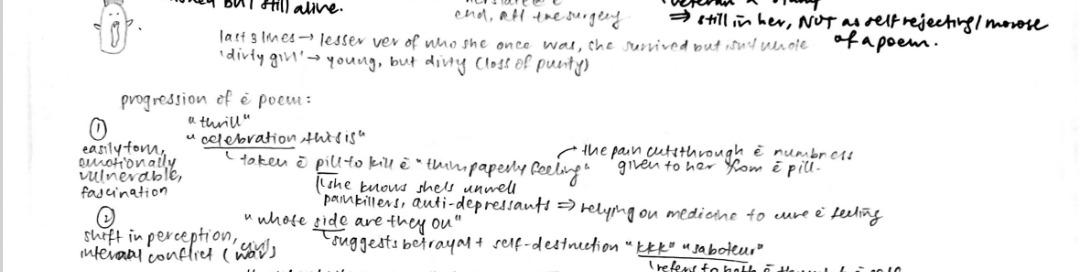 but still alive.
end, all the surgery
⇒ still in her, NOT as self rejecting/morose of a poem.
last 3 lines → lesser ver of who she once was, she survived but isn't whole
'dirty girl' → young, but dirty (loss of purity)
progression of ē poem:
① easily torn, emotionally vulnerable, fascination
"thrill"
"celebration this is"
taken ē pill to kill ē "thin papery feeling"
→ the pain cuts through ē numbness given to her from ē pill.
she knows she's unwell
painkillers, anti-depressants ⇒ relying on medicine to cure ē feeling
② shift in perception, internal conflict (civil war)
"whose side are they on"
suggests betrayal + self-destruction "KKK" "saboteur"
refers to both ē